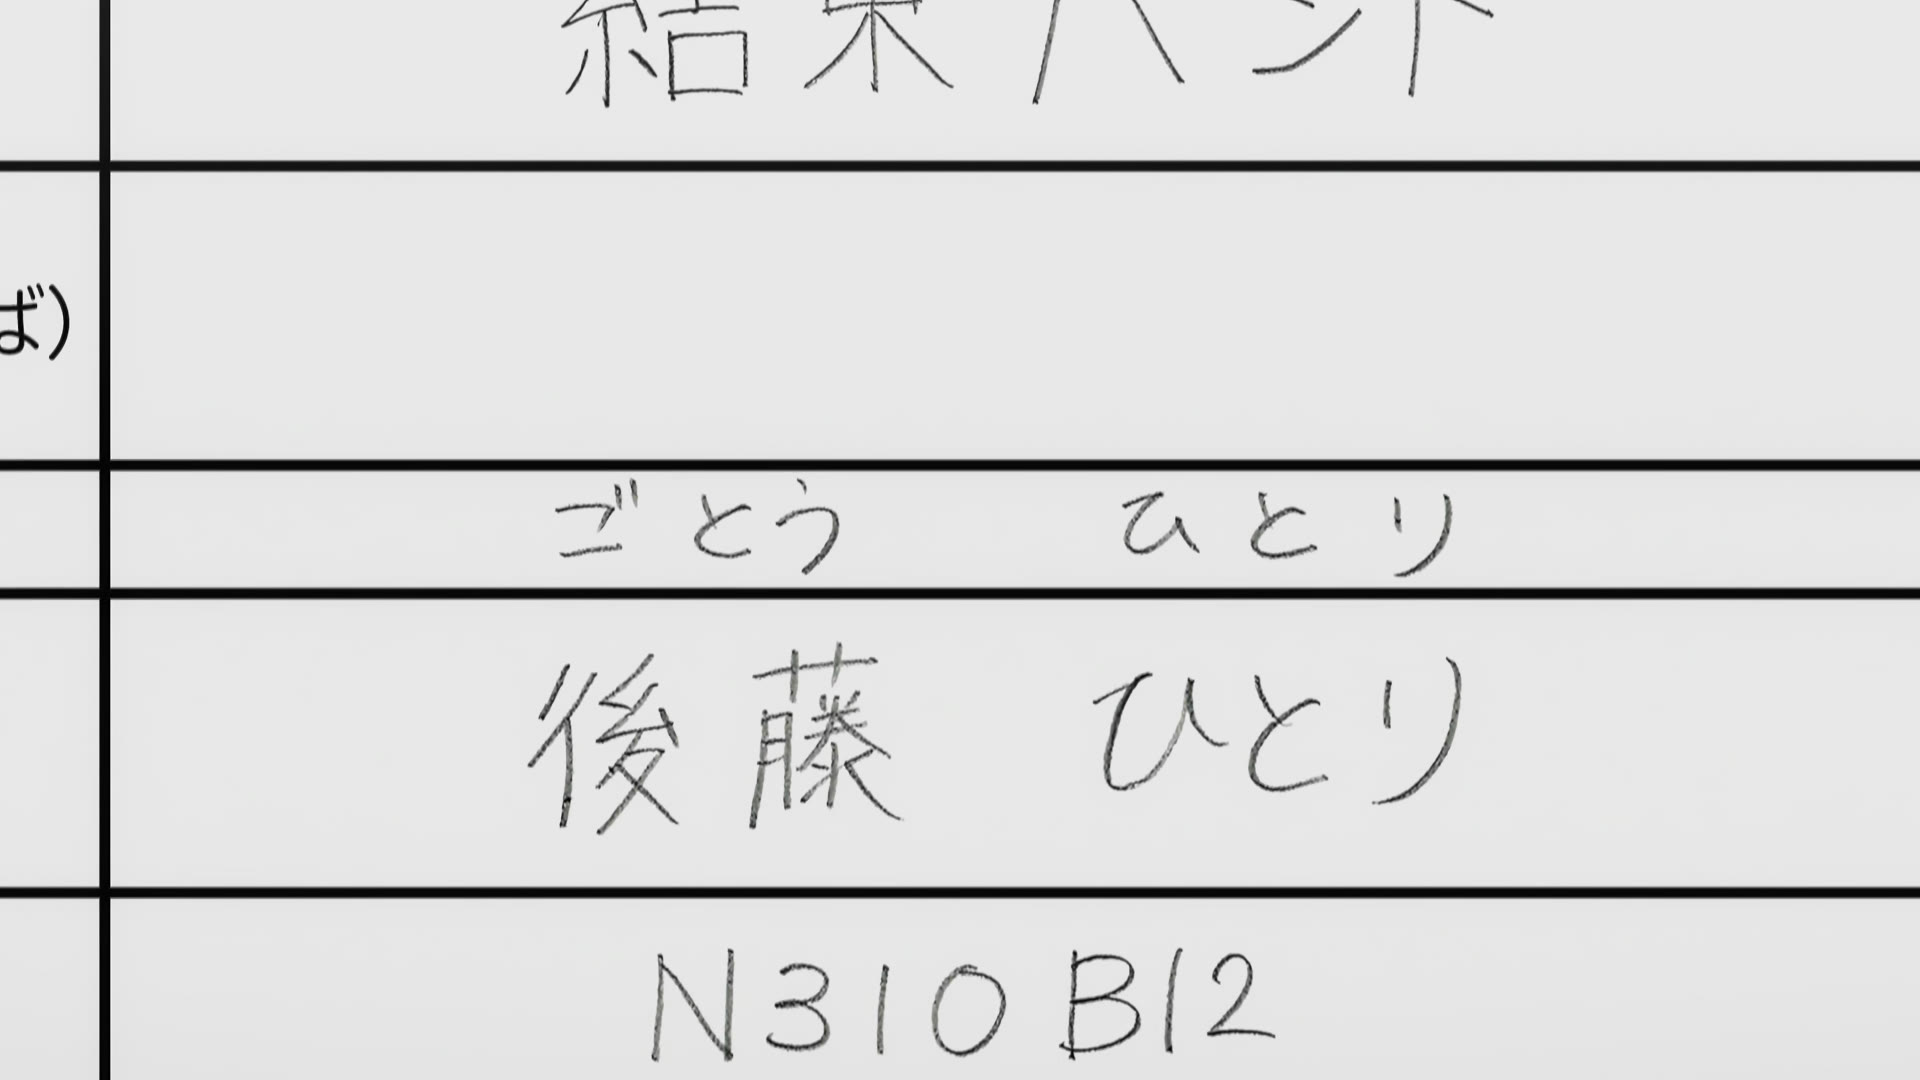 結束バンド
ば)
ごとう ひとり
後藤 ひとり
N310B12